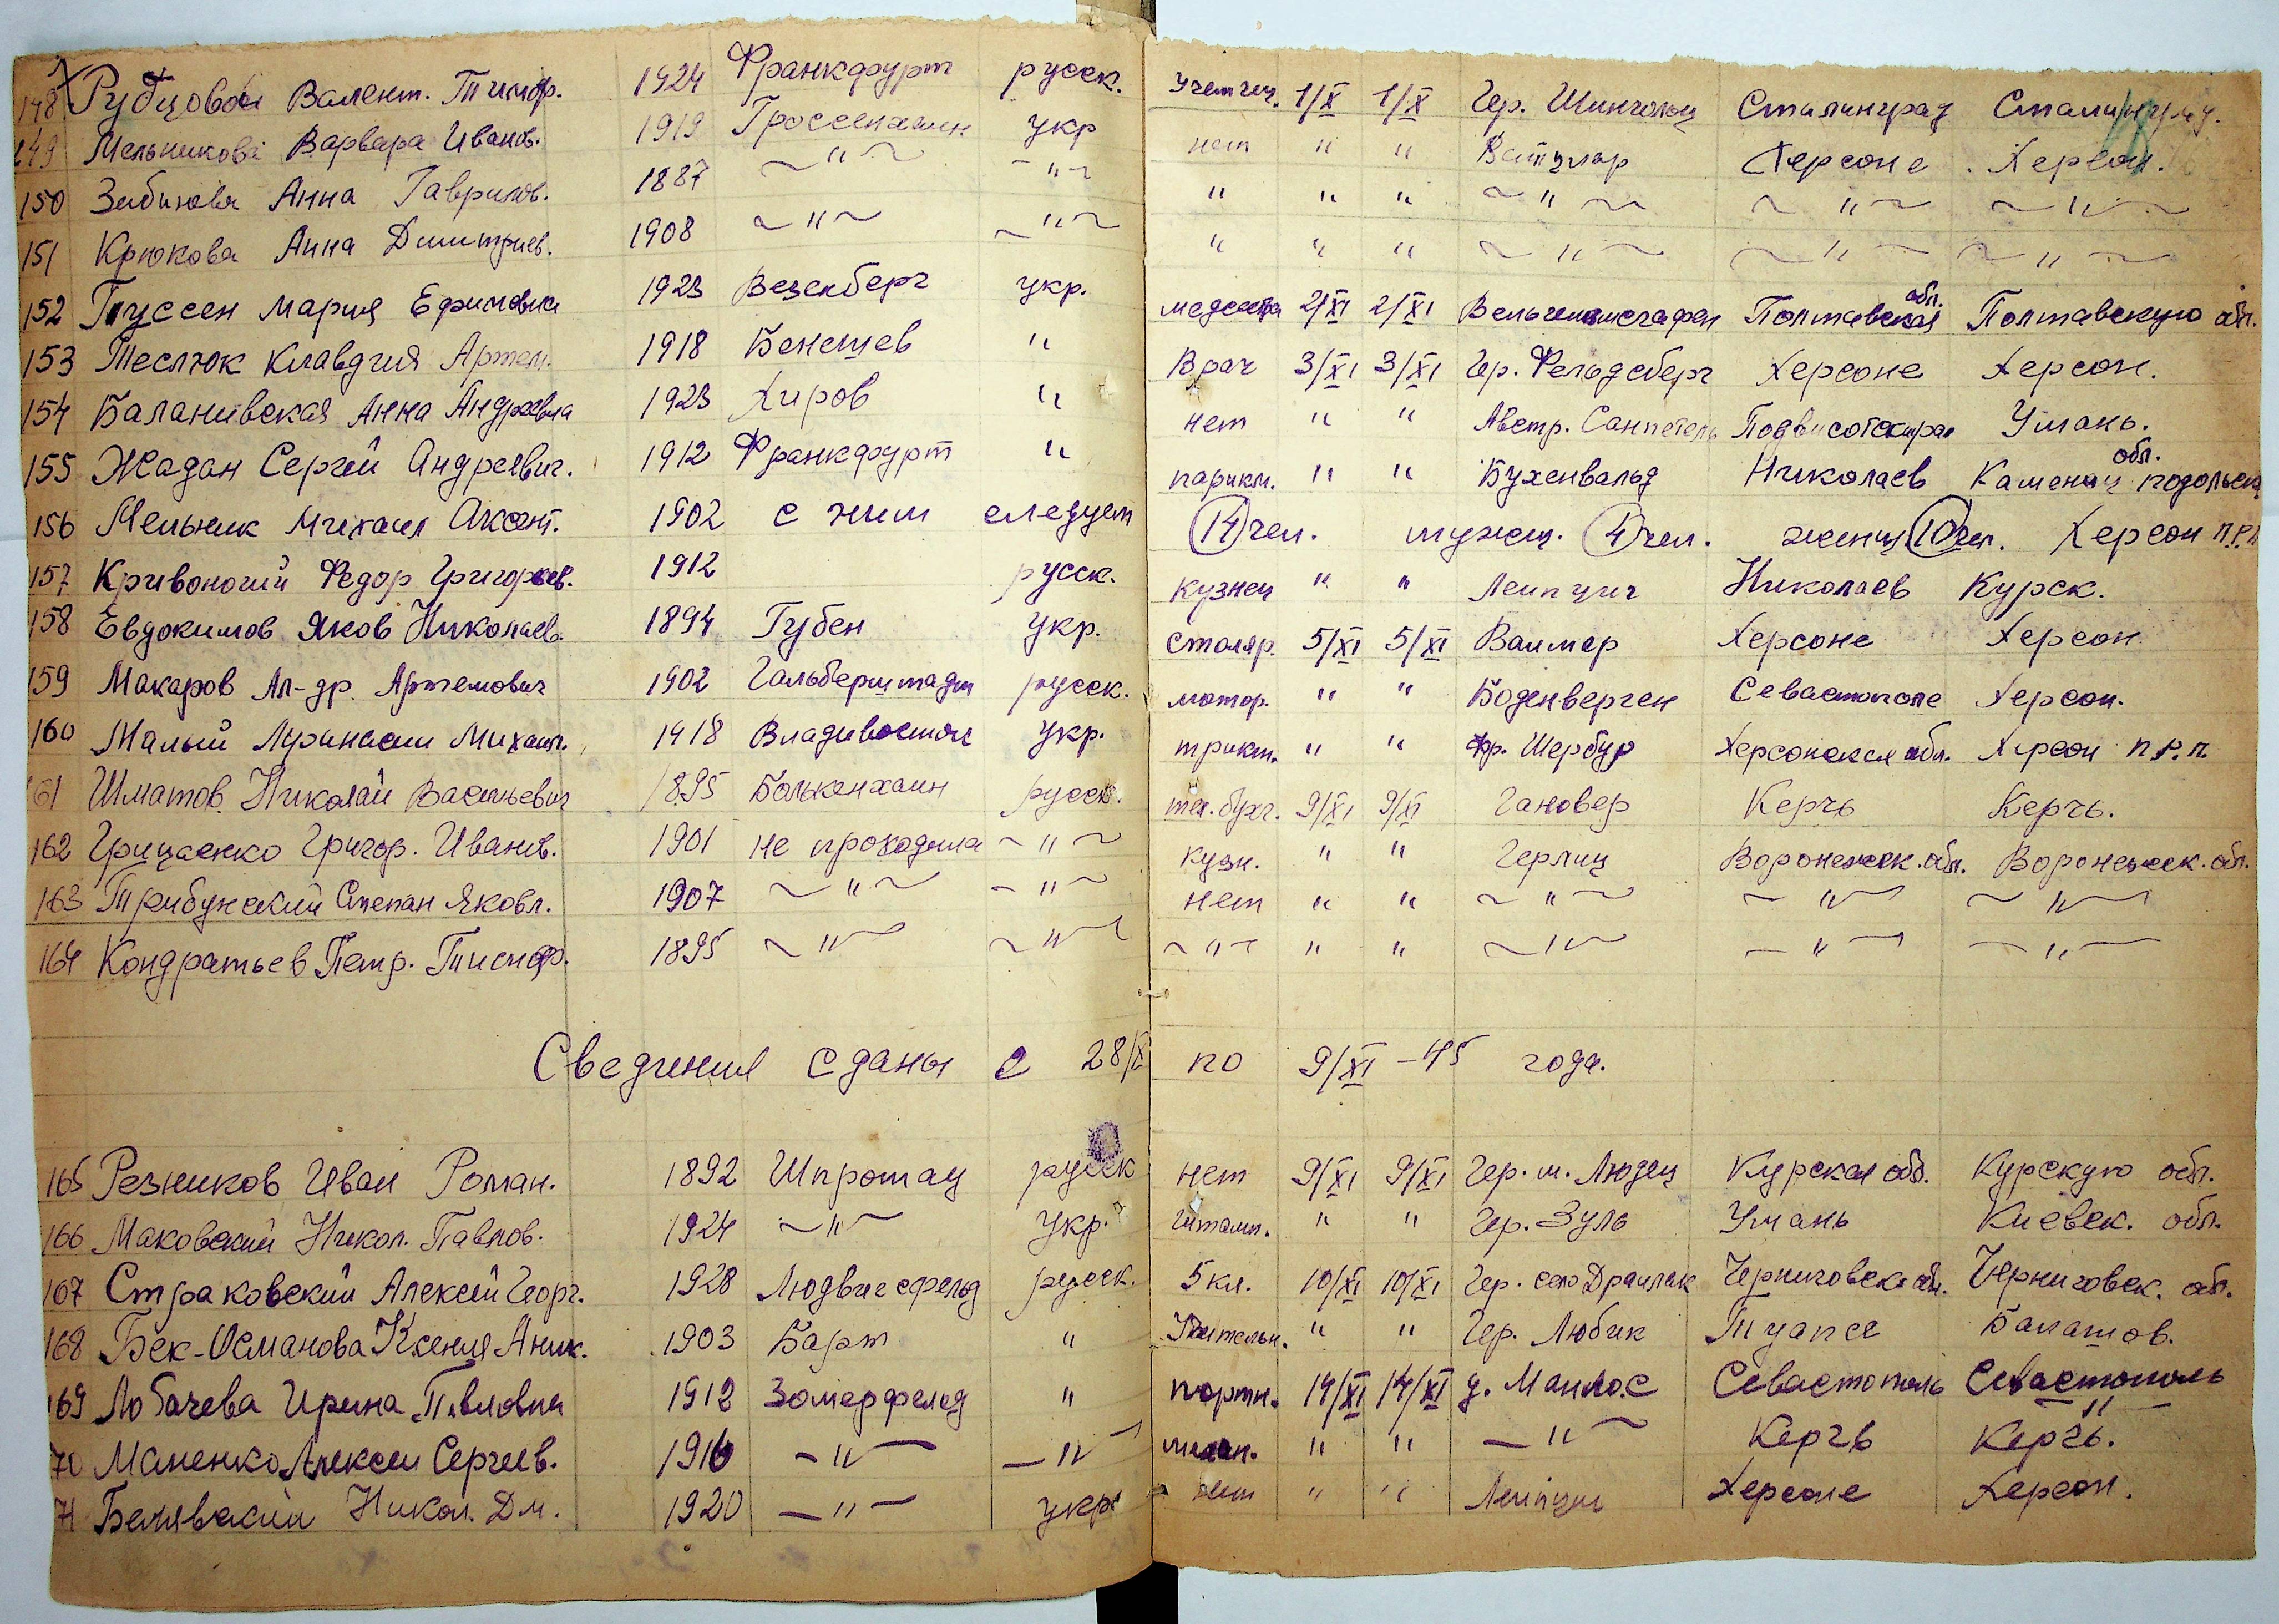 148 Рубцова Валент. Тимоф. 1924 Франкфурт русск. Учетчиц. 1/X 1/X Гер. Сталинград Сталинград.
149 Мельникова Варвара Иванов. 1919 Гроссенхаин укр нет " " Ветцлар Херсоне Херсон.
150 Анна Гаврилов. 1887 ~"~ ~"~ " " " ~"~ ~"~ ~"~
151 Крюкова Анна Димитриев. 1908 ~"~ ~"~ " " " ~"~ ~"~ ~"~
152 Туссен Мария Ефимовна 1923 Везенберг укр. медсестра 2/XI 2/XI Вельгельмсгафен Полтавская обл. Полтавскую обл.
153 Теслюк Клавдия Артем. 1918 Бенешев " Врач 3/XI 3/XI Гер. Фельдсберг Херсоне Херсон.
154 Баланивская Анна Андреевна 1923 Хиров " нет " " Австр. Умань.
155 Жадан Сергей Андреевич. 1912 Франкфурт " парикм. " " Бухенвальд Николаев Каменец подольск обл.
156 Мельник Михаил Аксент. 1902 с ним следует 14 чел. мужщ. 4 чел. женщ 10 чел. Херсон п.р.п
157 Кривоногий Федор Григорьев. 1912 русск. Кузнец " " Леипциг Николаев Курск.
158 Евдокимов Яков Николаев. 1894 Губен укр. столяр. 5/XI 5/XI Ваимер Херсоне Херсон
159 Макаров Ал-др. Артемович 1902 Гальберштадт русск. мотор. " " Боденверген Севастополе Херсон.
160 Малый Михаил. 1918 Владивосток укр. тракт. " " Фр. Шербур Херсонская обл. Херсон п.р.п.
161 Шматов Николай Васильевич 1895 Болькенхаин русск. тех. бухг. 9/XI 9/XI Гановер Керчь Керчь.
162 Грицаенко Григор. Иванов. 1901 не проходила ~"~ Кузн. " " Герлиц Воронежск. обл. Воронежск. обл.
163 Трибунский Степан Яковл. 1907 ~"~ ~"~ нет " " ~"~ ~"~ ~"~
164 Кондратьев Петр. Тимоф. 1895 ~"~ ~"~ ~"~ " " ~"~ ~"~ ~"~
Сведения сданы с 28/X по 9/XI – 45 года.
165 Резников Иван Роман. 1892 Шпротау русск нет 9/XI 9/XI Гер. м. Людец Курская обл. Курскую обл.
166 Маковский Никол. Павлов. 1924 ~"~ укр. штамп. " " Гер. Зуль Умань Киевск. обл.
167 Страковский Алексей Георг. 1928 Людвигсфельд русск. 5 кл. 10/XI 10/XI Гер. село Черниговск обл. Черниговск. обл.
168 Бек-Османова Ксения Аник. 1903 Барт " " " Гер. Любик Туапсе Балашов.
169 Лобачева Ирина Павловна 1912 Зомерфельд " портн. 14/XI 14/XI д. Севастополь Севастополь
70 Маненко Алексеи Сергеев. 1916 ~"~ ~"~ " " ~"~ Керчь Керчь.
71 Белявский Никол. Дм. 1920 ~"~ укр нет " " Леипциг Херсоне Херсон.